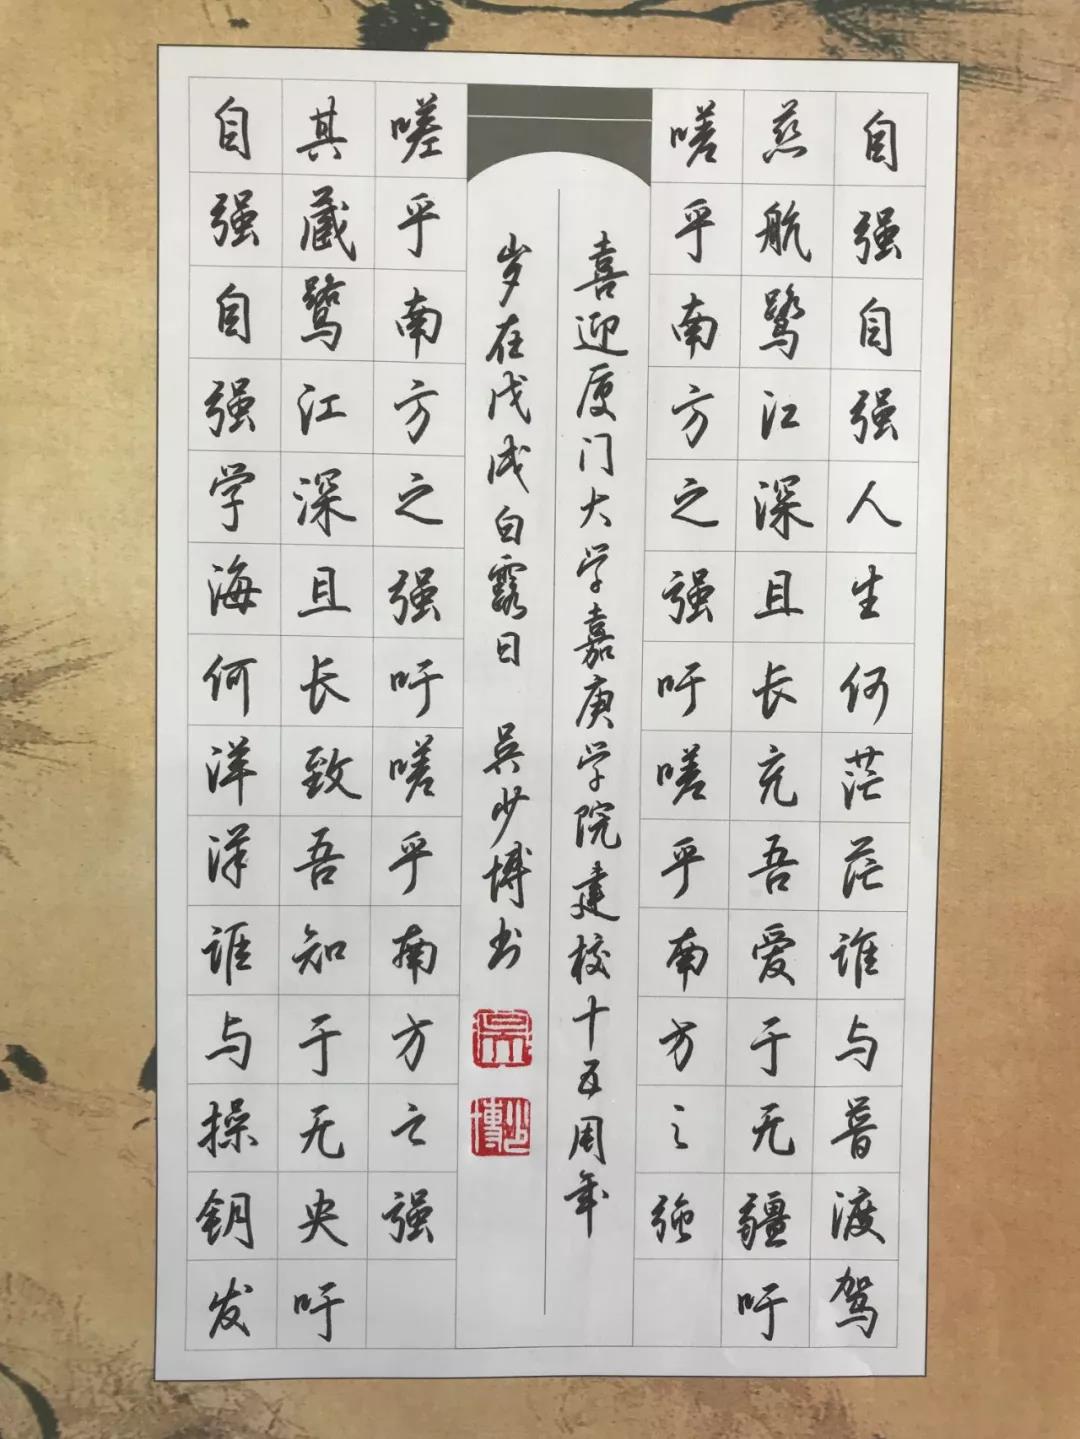 自强自强学海何洋洋谁与操钥发
其藏鹭江深且长致吾知于无央吁
嗟乎南方之强吁嗟乎南方之强
自强自强人生何茫茫谁与普渡驾
慈航鹭江深且长充吾爱于无疆吁
嗟乎南方之强吁嗟乎南方之强
喜迎厦门大学嘉庚学院建校十五周年
岁在戊戌白露日 吴少博书
吴
少博